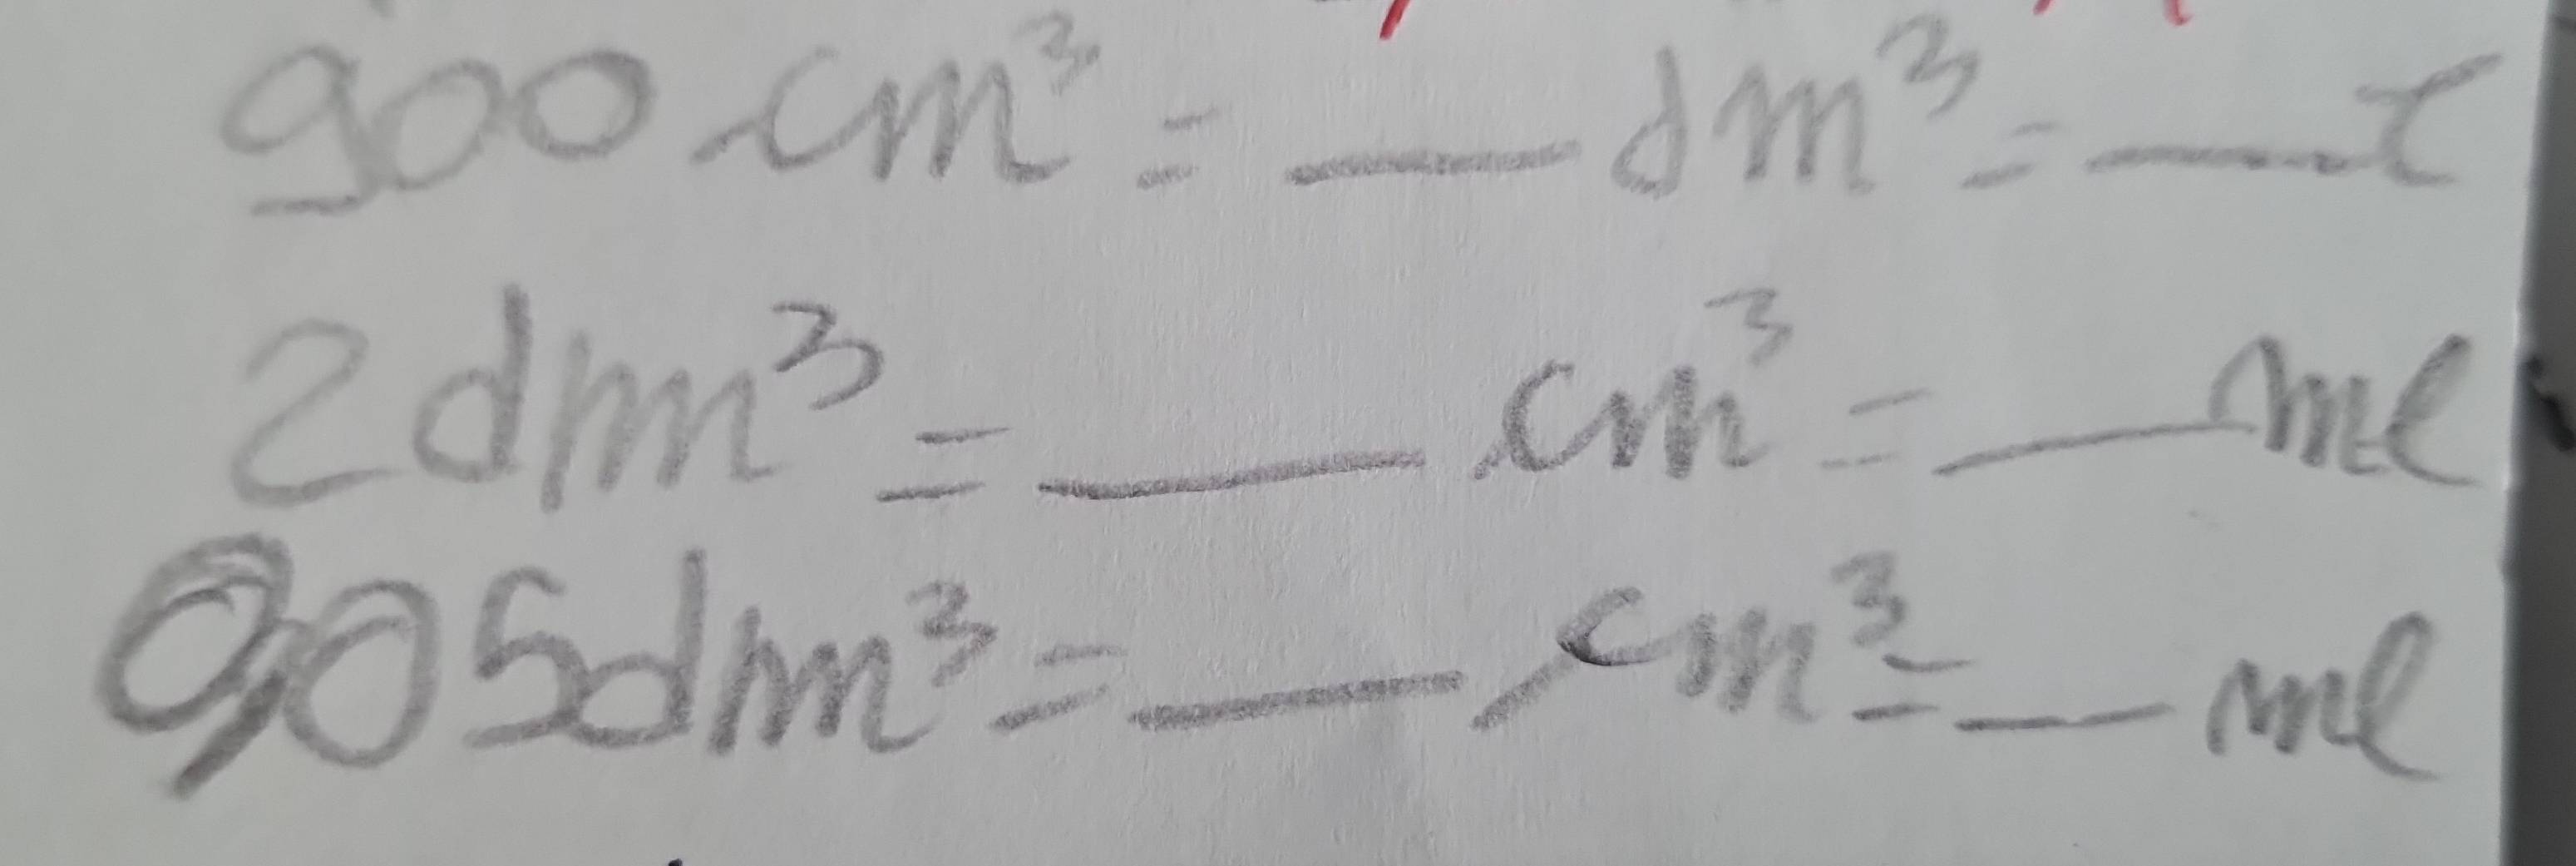 900 cm³ = ___ dm³ = ___ l
2dm³ = ___ cm³ = ___ ml
0,05dm³ = ___ cm³ = ___ ml